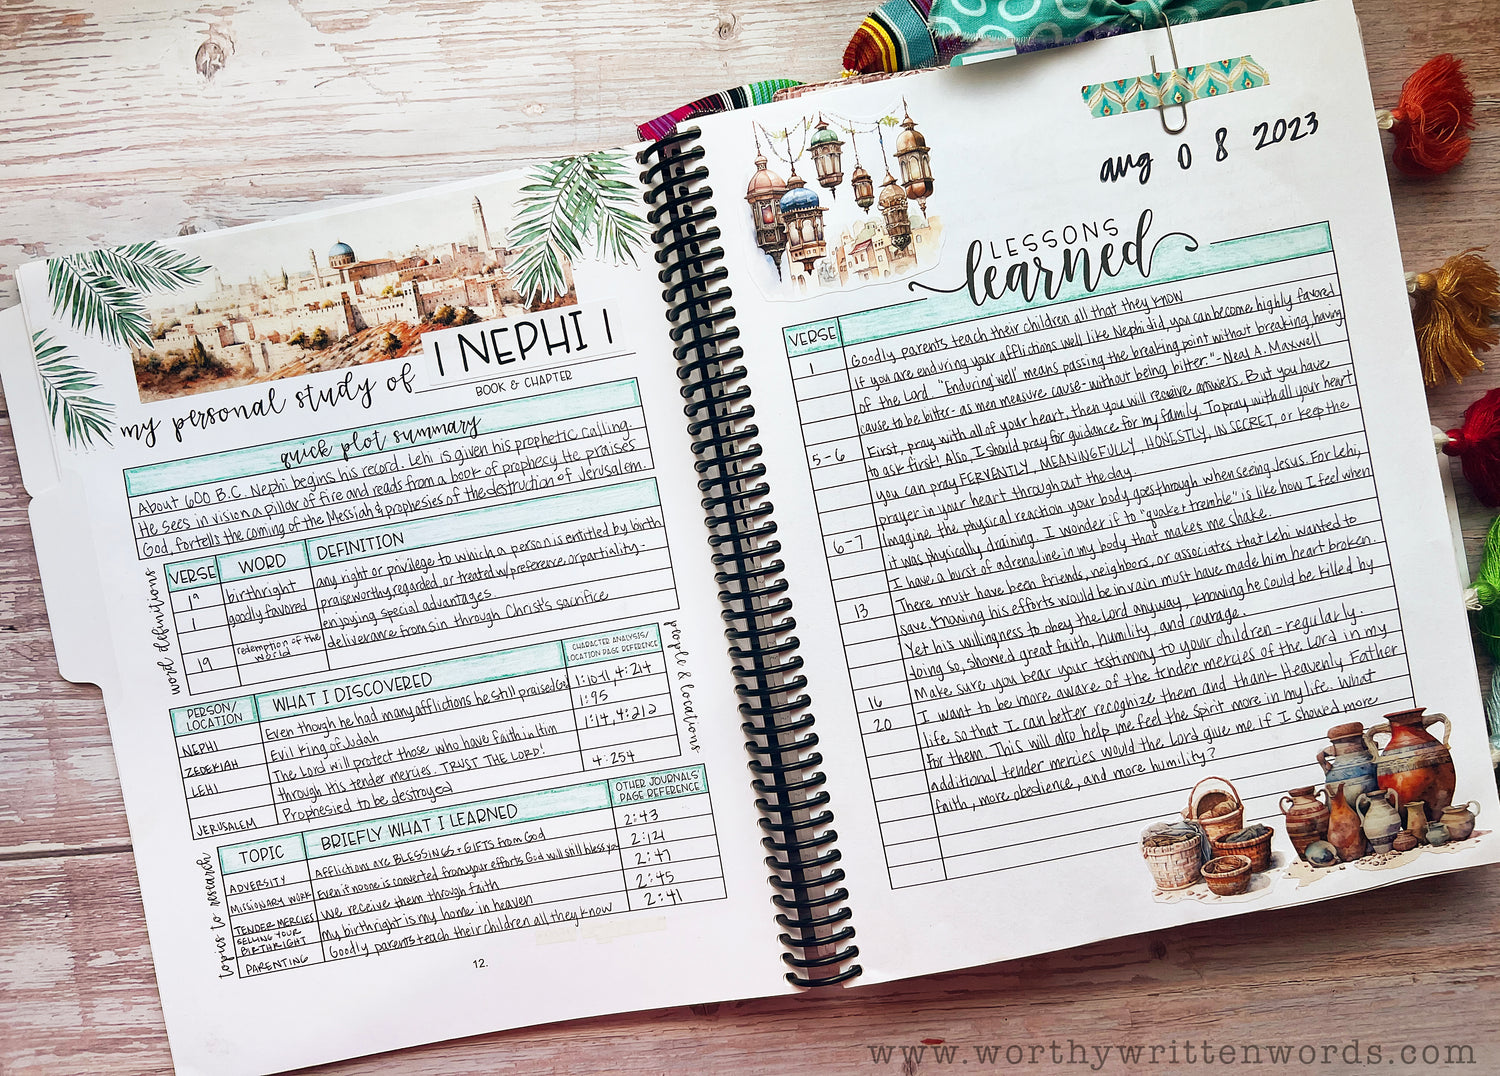 my personal study of 1 NEPHI 1
BOOK & CHAPTER
quick plot summary
About 600 B.C. Nephi begins his record. Lehi is given his prophetic calling.
He sees in vision a pillar of fire and reads from a book of prophecy. He praises
God, fortells the coming of the Messiah & prophesies of the destruction of Jerusalem.
word definitions
VERSE WORD DEFINITION
1a birthright any right or privilege to which a person is entitled by birth
1 goodly favored praiseworthy, regarded or treated w/ preference, or partiality-
enjoying special advantages
19 redemption of the world deliverance from sin through Christ's sacrifice
people & locations
PERSON/LOCATION WHAT I DISCOVERED CHARACTER ANALYSIS/LOCATION PAGE REFERENCE
NEPHI Even though he had many afflictions he still praised God 1:10-11, 4:214
ZEDEKIAH Evil King of Judah 1:95
LEHI The Lord will protect those who have faith in Him 1:14, 4:212
through His tender mercies. TRUST THE LORD!
JERUSALEM Prophesied to be destroyed 4:254
topics to research
TOPIC BRIEFLY WHAT I LEARNED OTHER JOURNALS' PAGE REFERENCE
ADVERSITY Afflictions are BLESSINGS + GIFTS from God 2:43
MISSIONARY WORK Even if no one is converted from your efforts God will still bless you 2:121
TENDER MERCIES We receive them through faith 2:47
SELLING YOUR BIRTHRIGHT My birthright is my home in heaven 2:45
PARENTING Goodly parents teach their children all they know 2:41
12.
aug 08 2023
LESSONS
learned
VERSE
1 Goodly parents teach their children all that they know
If you are enduring your afflictions well like Nephi did, you can become highly favored
of the Lord. "'Enduring well' means passing the breaking point without breaking, having
cause to be bitter- as men measure cause- without being bitter."-Neal A. Maxwell
5-6 First, pray with all of your heart, then you will receive answers. But you have
to ask first! Also, I should pray for guidance for my family. To pray with all your heart
you can pray FERVENTLY, MEANINGFULLY, HONESTLY, IN SECRET, or keep the
prayer in your heart throughout the day.
6-7 Imagine the physical reaction your body goes through when seeing Jesus. For Lehi,
it was physically draining. I wonder if to "quake + tremble" is like how I feel when
I have a burst of adrenaline in my body that makes me shake.
13 There must have been friends, neighbors, or associates that Lehi wanted to
save. Knowing his efforts would be in vain must have made him heart broken.
Yet his willingness to obey the Lord anyway, knowing he could be killed by
doing so, showed great faith, humility, and courage.
16 Make sure you bear your testimony to your children - regularly.
20 I want to be more aware of the tender mercies of the Lord in my
life so that I can better recognize them and thank Heavenly Father
for them. This will also help me feel the Spirit more in my life. What
additional tender mercies would the Lord give me if I showed more
faith, more obedience, and more humility?
www.worthywrittenwords.com